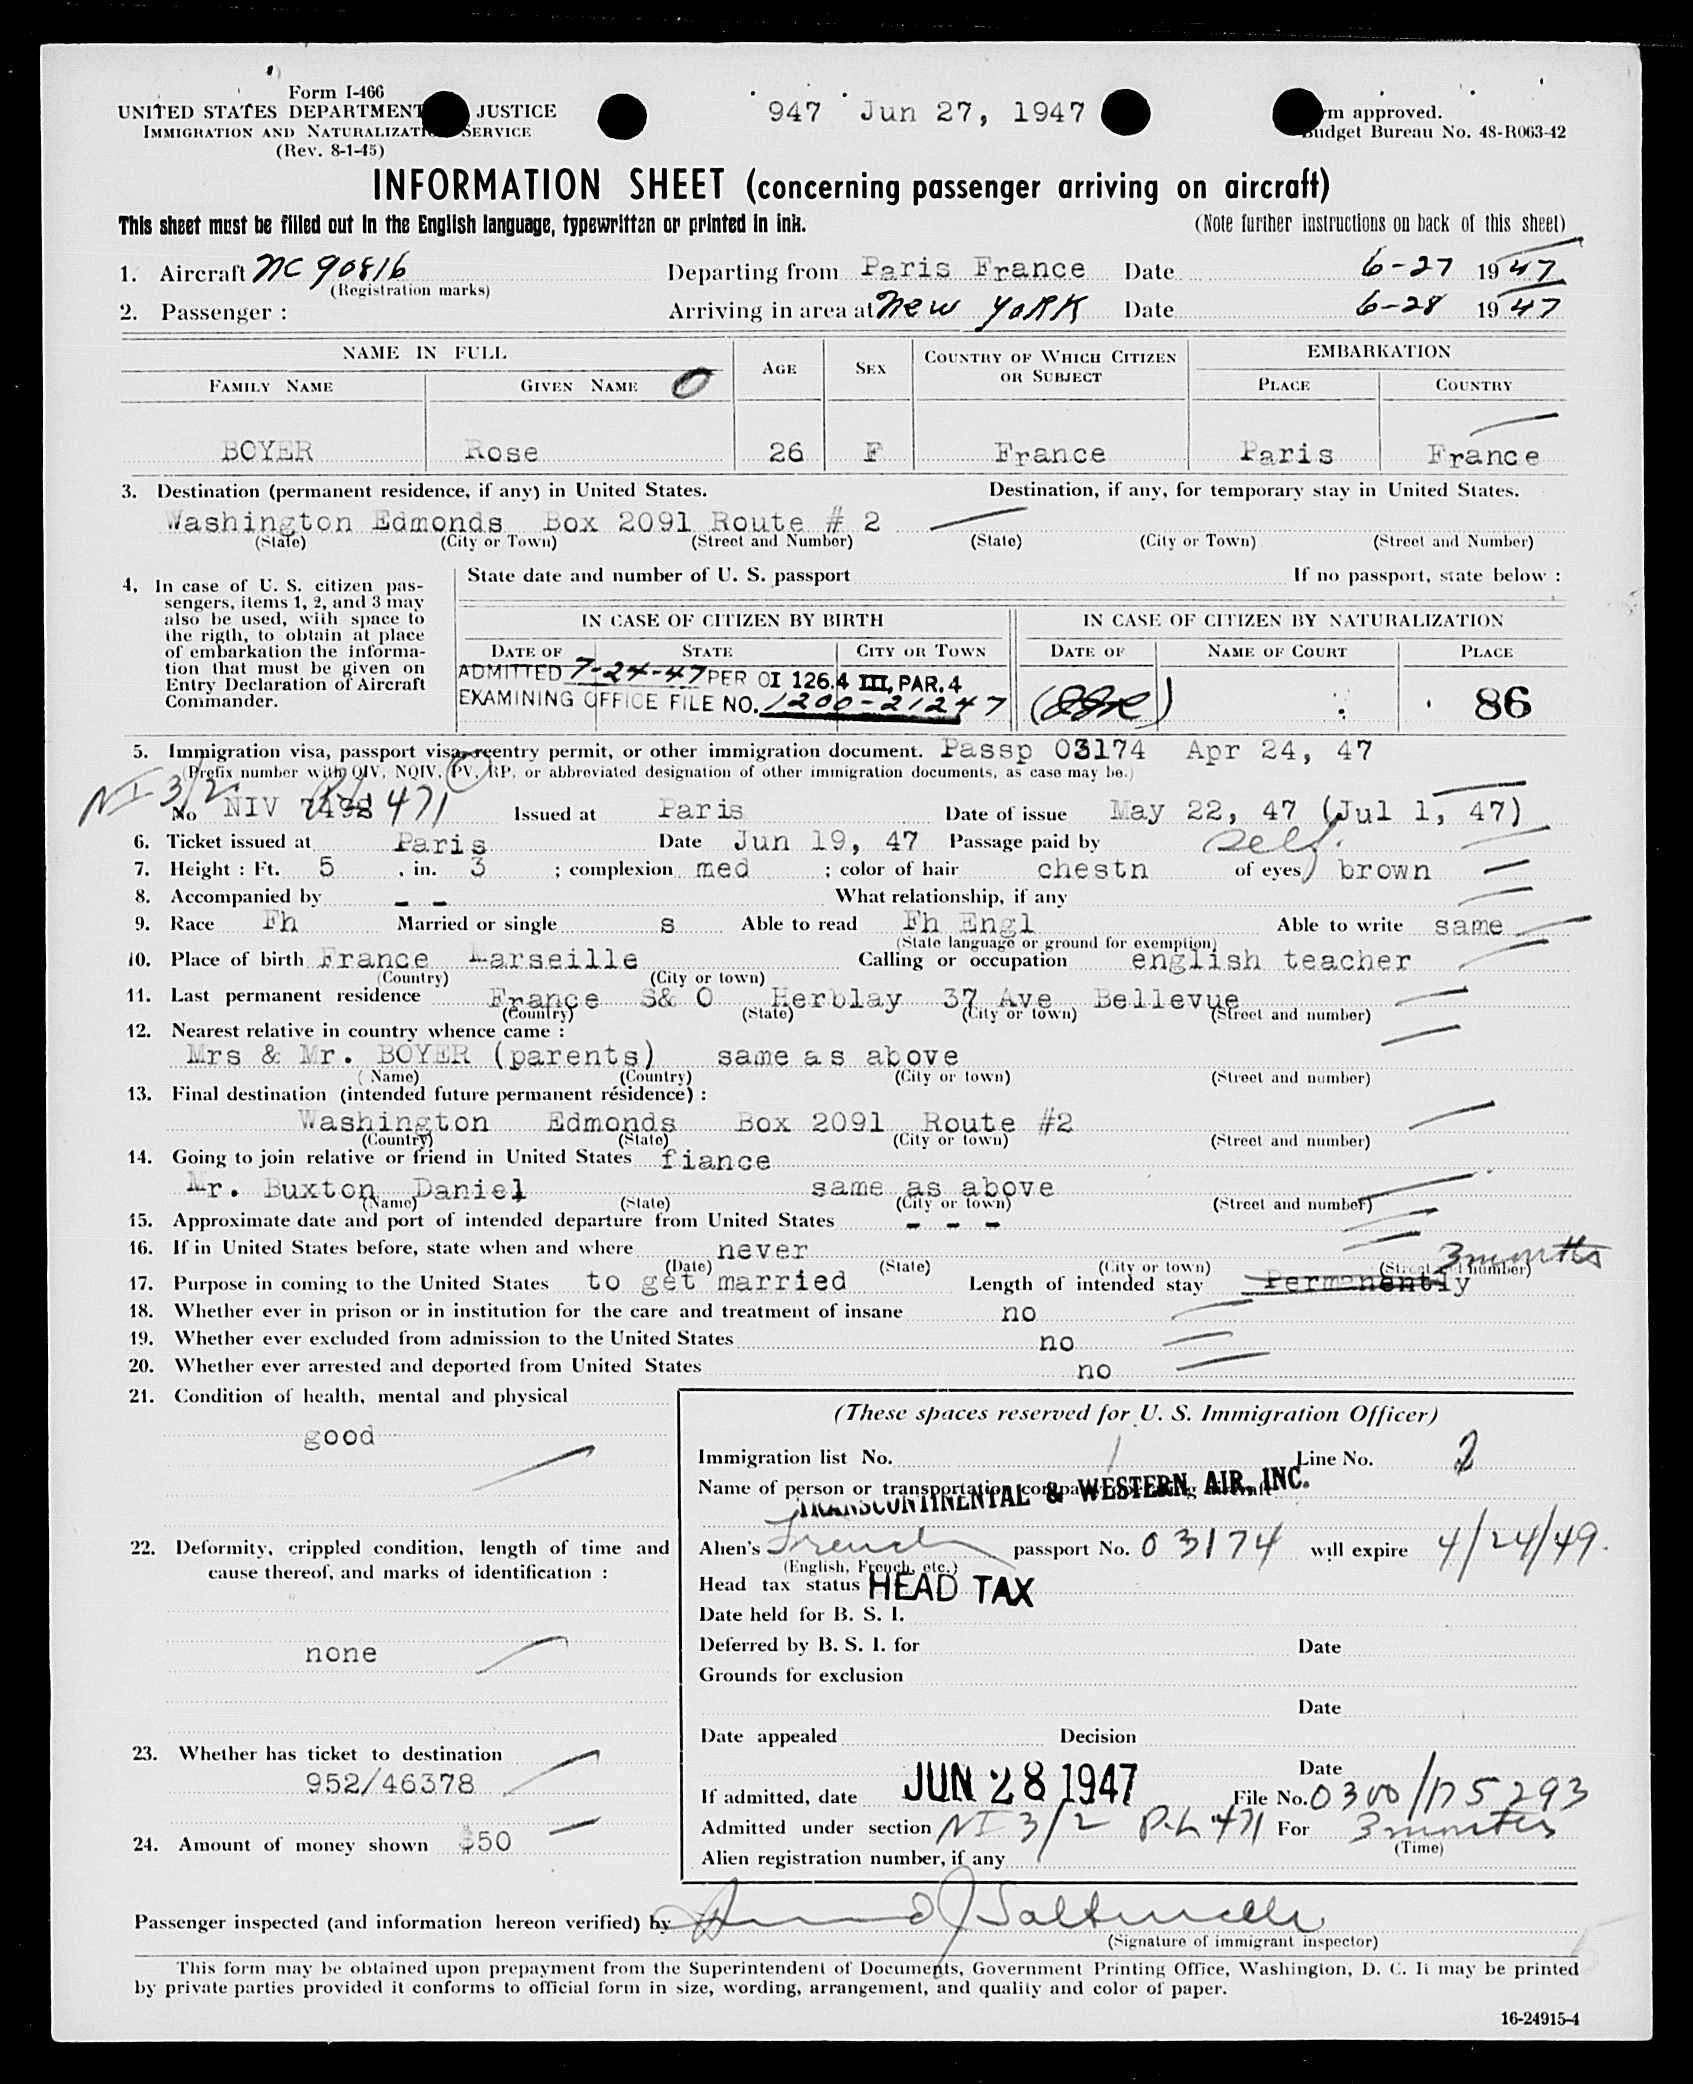 Form I-466
UNITED STATES DEPARTMENT JUSTICE
IMMIGRATION AND NATURALIZATION SERVICE
(Rev. 8-1-45)
947 Jun 27, 1947
rm approved.
Budget Bureau No. 48-R063-42
INFORMATION SHEET (concerning passenger arriving on aircraft)
This sheet must be filled out in the English language, typewritten or printed in ink. (Note further instructions on back of this sheet)
1. Aircraft NC 90816 Departing from Paris France Date 6-27 1947
(Registration marks)
2. Passenger : Arriving in area at New York Date 6-28 1947
NAME IN FULL AGE SEX COUNTRY OF WHICH CITIZEN OR SUBJECT EMBARKATION
FAMILY NAME GIVEN NAME O PLACE COUNTRY
BOYER Rose 26 F France Paris France
3. Destination (permanent residence, if any) in United States. Destination, if any, for temporary stay in United States.
Washington Edmonds Box 2091 Route # 2
(State) (City or Town) (Street and Number) (State) (City or Town) (Street and Number)
4. In case of U. S. citizen pas-
sengers, items 1, 2, and 3 may
also be used, with space to
the rigth, to obtain at place
of embarkation the informa-
tion that must be given on
Entry Declaration of Aircraft
Commander.
State date and number of U. S. passport If no passport, state below :
IN CASE OF CITIZEN BY BIRTH IN CASE OF CITIZEN BY NATURALIZATION
DATE OF STATE CITY OR TOWN DATE OF NAME OF COURT PLACE
ADMITTED 7-24-47 PER OI 126.4 III, PAR. 4
EXAMINING OFFICE FILE NO. 1200-21247 86
5. Immigration visa, passport visa, reentry permit, or other immigration document. Passp 03174 Apr 24, 47
(Prefix number with QIV, NQIV, PV, RP, or abbreviated designation of other immigration documents, as case may be.)
NI 3/2
No NIV 7498 471 Issued at Paris Date of issue May 22, 47 (Jul 1, 47)
6. Ticket issued at Paris Date Jun 19, 47 Passage paid by Self.
7. Height : Ft. 5 , in. 3 ; complexion med ; color of hair chestn of eyes brown
8. Accompanied by - - What relationship, if any
9. Race Fh Married or single s Able to read Fh Engl Able to write same
(State language or ground for exemption)
10. Place of birth France Marseille Calling or occupation english teacher
(Country) (City or town)
11. Last permanent residence France S& O Herblay 37 Ave Bellevue
(Country) (State) (City or town) (Street and number)
12. Nearest relative in country whence came :
Mrs & Mr. BOYER (parents) same as above
(Name) (Country) (City or town) (Street and number)
13. Final destination (intended future permanent résidence) :
Washington Edmonds Box 2091 Route #2
(Country) (State) (City or town) (Street and number)
14. Going to join relative or friend in United States fiance
Mr. Buxton Daniel same as above
(Name) (State) (City or town) (Street and number)
15. Approximate date and port of intended departure from United States - - -
16. If in United States before, state when and where never
(Date) (State) (City or town) (Street and number)
3 months
17. Purpose in coming to the United States to get married Length of intended stay Permanently
18. Whether ever in prison or in institution for the care and treatment of insane no
19. Whether ever excluded from admission to the United States no
20. Whether ever arrested and deported from United States no
21. Condition of health, mental and physical
good
22. Deformity, crippled condition, length of time and
cause thereof, and marks of identification :
none
23. Whether has ticket to destination
952/46378
24. Amount of money shown $50
(These spaces reserved for U. S. Immigration Officer)
Immigration list No. 1 Line No. 2
Name of person or transportation company operating aircraft
TRANSCONTINENTAL & WESTERN AIR, INC.
Alien's French passport No. 03174 will expire 4/24/49.
(English, French, etc.)
Head tax status HEAD TAX
Date held for B. S. I.
Deferred by B. S. I. for Date
Grounds for exclusion
Date
Date appealed Decision
Date
If admitted, date JUN 28 1947 File No. 0300/175293
Admitted under section NI 3/2 P.L 471 For 3 months
(Time)
Alien registration number, if any
Passenger inspected (and information hereon verified) by
(Signature of immigrant inspector)
This form may be obtained upon prepayment from the Superintendent of Documents, Government Printing Office, Washington, D. C. It may be printed
by private parties provided it conforms to official form in size, wording, arrangement, and quality and color of paper.
16-24915-4